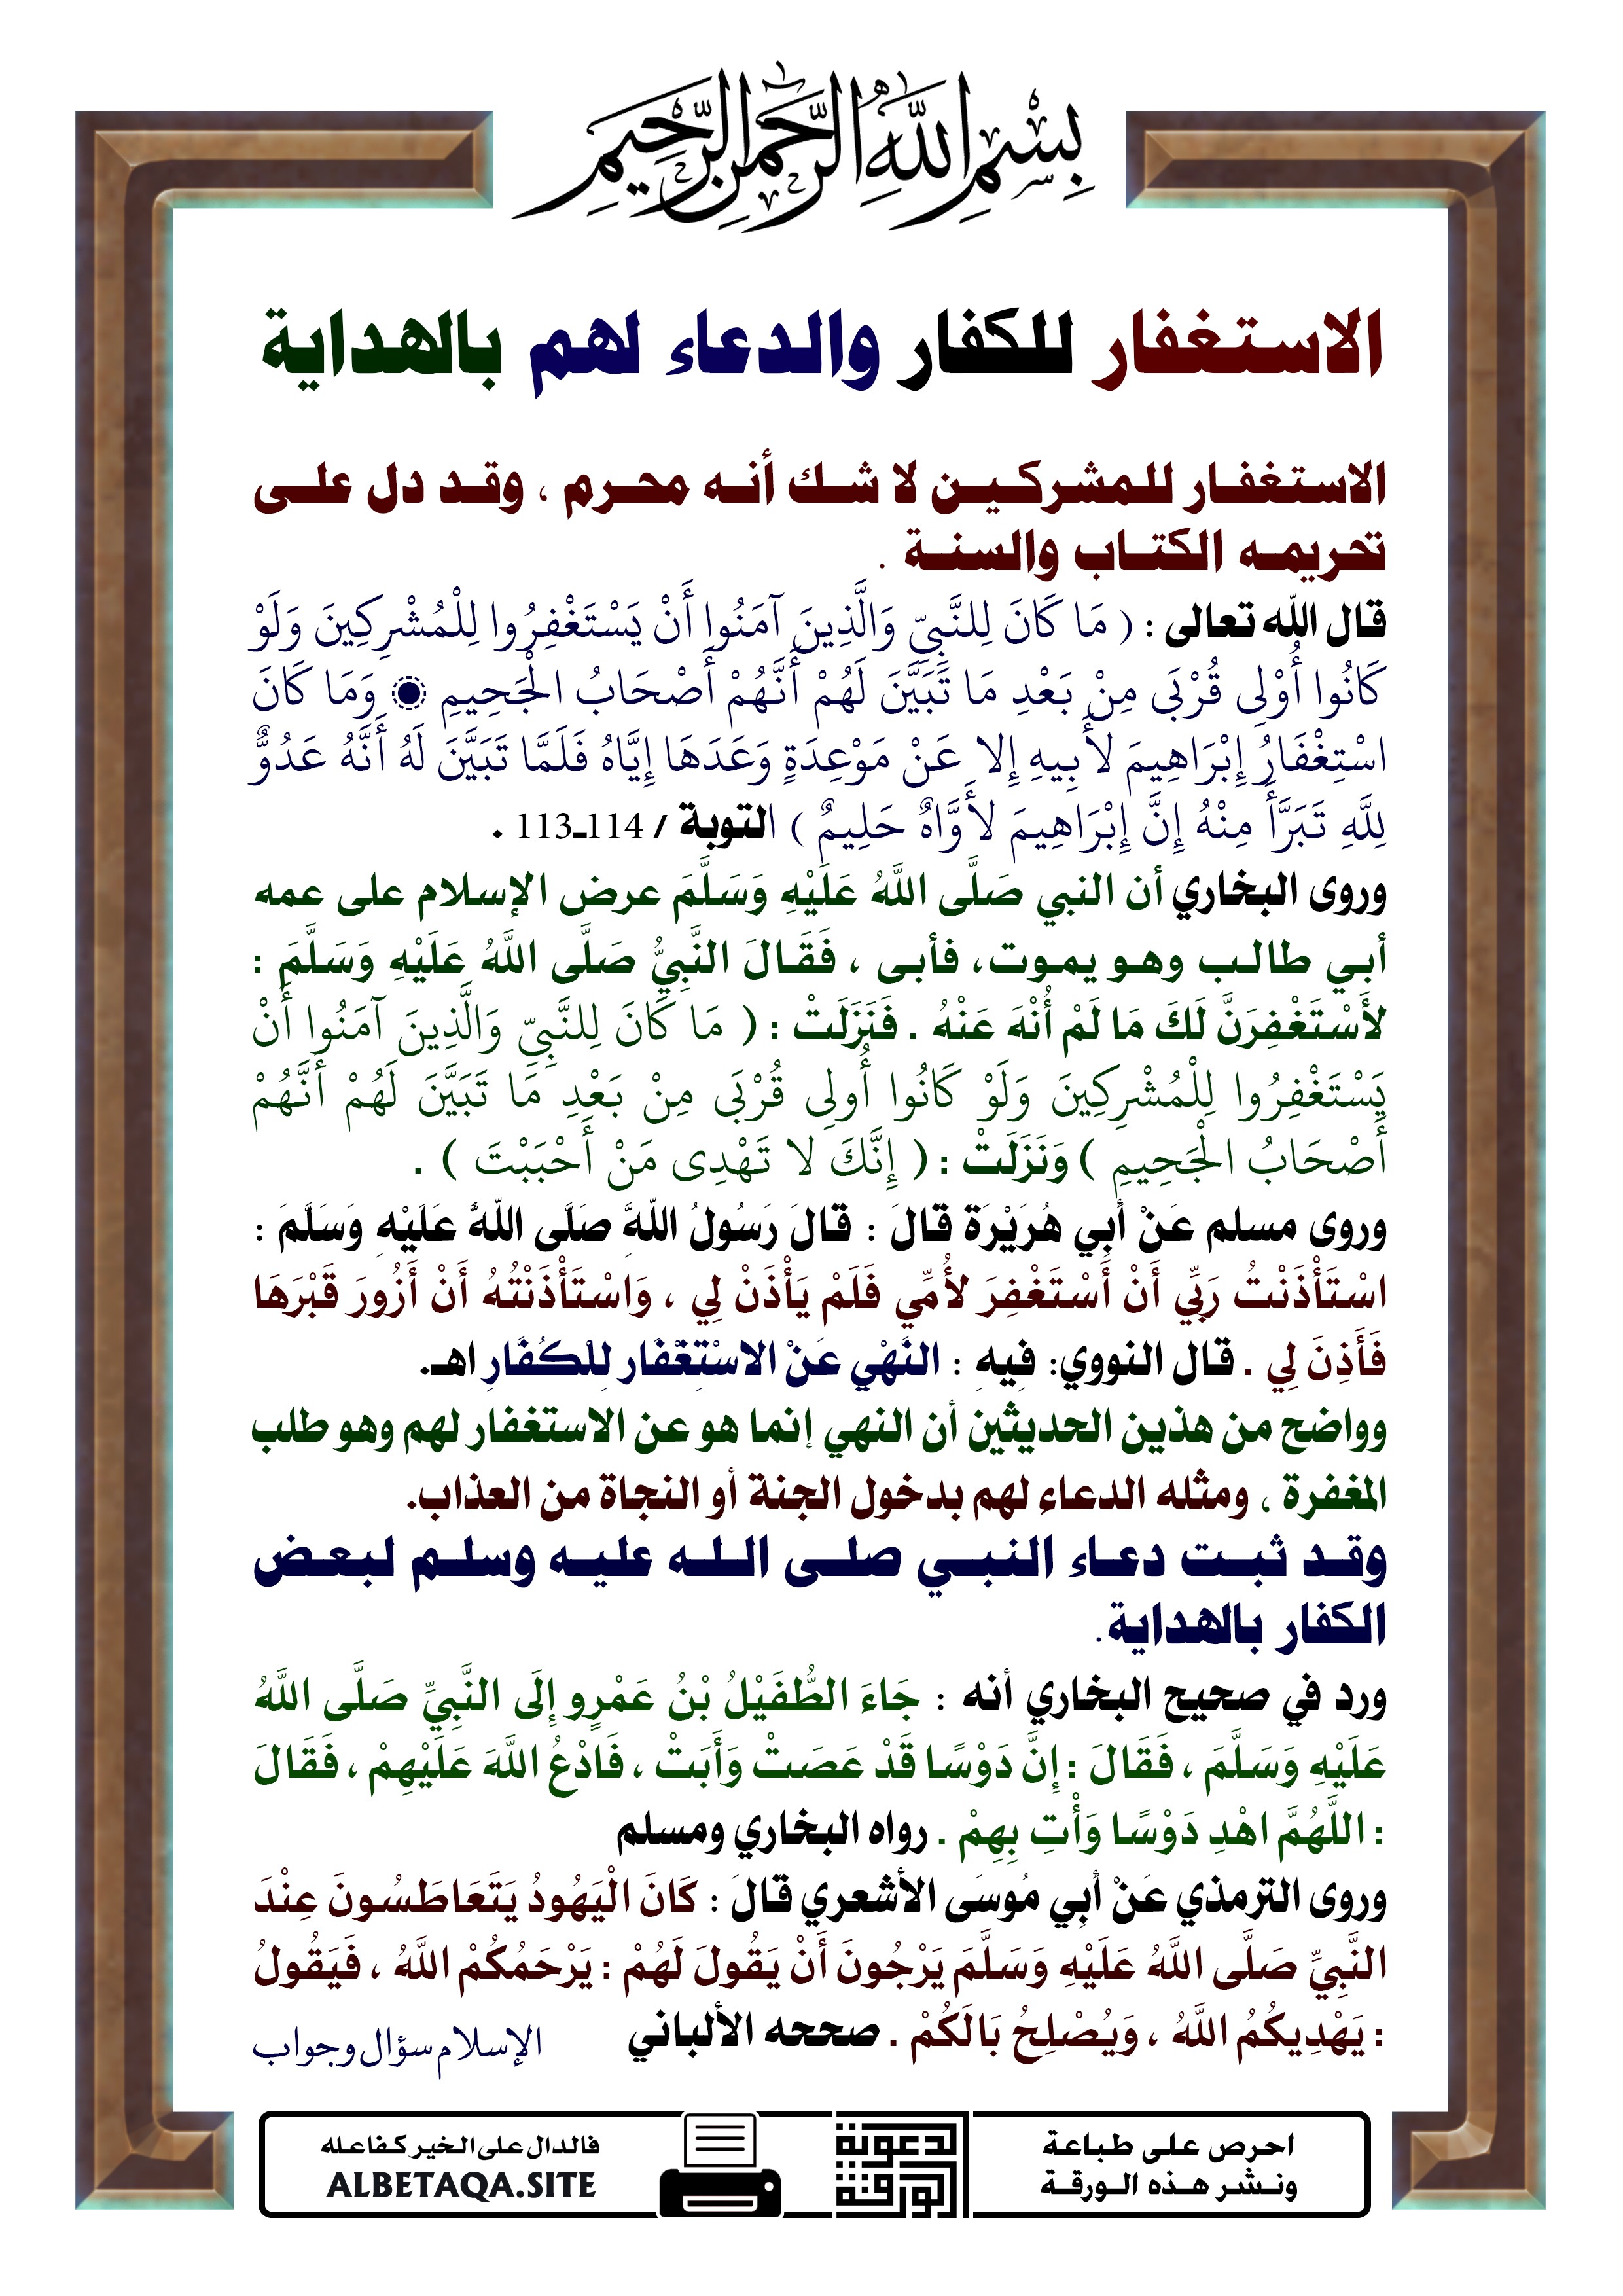 بِسْمِ اللَّهِ الرَّحْمَٰنِ الرَّحِيمِ
الاستغفار للكفار والدعاء لهم بالهداية
الاستغفار للمشركين لا شك أنه محرم ، وقد دل على
تحريمه الكتاب والسنة .
قال الله تعالى : ( مَا كَانَ لِلنَّبِيِّ وَالَّذِينَ آمَنُوا أَنْ يَسْتَغْفِرُوا لِلْمُشْرِكِينَ وَلَوْ
كَانُوا أُوْلِى قُرْبَى مِنْ بَعْدِ مَا تَبَيَّنَ لَهُمْ أَنَّهُمْ أَصْحَابُ الْجَحِيمِ ۞ وَمَا كَانَ
اسْتِغْفَارُ إِبْرَاهِيمَ لأَبِيهِ إِلا عَنْ مَوْعِدَةٍ وَعَدَهَا إِيَّاهُ فَلَمَّا تَبَيَّنَ لَهُ أَنَّهُ عَدُوٌّ
لِلَّهِ تَبَرَّأَ مِنْهُ إِنَّ إِبْرَاهِيمَ لأَوَّاهٌ حَلِيمٌ ) التوبة / 114ـ113 .
وروى البخاري أن النبي صَلَّى اللَّهُ عَلَيْهِ وَسَلَّمَ عرض الإسلام على عمه
أبي طالب وهو يموت، فأبى ، فَقَالَ النَّبِيُّ صَلَّى اللَّهُ عَلَيْهِ وَسَلَّمَ :
لأَسْتَغْفِرَنَّ لَكَ مَا لَمْ أُنْهَ عَنْهُ . فَنَزَلَتْ : ( مَا كَانَ لِلنَّبِيِّ وَالَّذِينَ آمَنُوا أَنْ
يَسْتَغْفِرُوا لِلْمُشْرِكِينَ وَلَوْ كَانُوا أُولِى قُرْبَى مِنْ بَعْدِ مَا تَبَيَّنَ لَهُمْ أَنَّهُمْ
أَصْحَابُ الْجَحِيمِ ) وَنَزَلَتْ : ( إِنَّكَ لا تَهْدِى مَنْ أَحْبَبْتَ ) .
وروى مسلم عَنْ أَبِي هُرَيْرَةَ قَالَ : قَالَ رَسُولُ اللَّهِ صَلَّى اللَّهُ عَلَيْهِ وَسَلَّمَ :
اسْتَأْذَنْتُ رَبِّي أَنْ أَسْتَغْفِرَ لأُمِّي فَلَمْ يَأْذَنْ لِي ، وَاسْتَأْذَنْتُهُ أَنْ أَزُورَ قَبْرَهَا
فَأَذِنَ لِي . قال النووي: فِيهِ : النَّهْي عَنْ الاسْتِغْفَار لِلْكُفَّارِ اهـ.
وواضح من هذين الحديثين أن النهي إنما هو عن الاستغفار لهم وهو طلب
المغفرة ، ومثله الدعاء لهم بدخول الجنة أو النجاة من العذاب.
وقد ثبت دعاء النبي صلى الله عليه وسلم لبعض
الكفار بالهداية.
ورد في صحيح البخاري أنه : جَاءَ الطُّفَيْلُ بْنُ عَمْرٍو إِلَى النَّبِيِّ صَلَّى اللَّهُ
عَلَيْهِ وَسَلَّمَ ، فَقَالَ : إِنَّ دَوْسًا قَدْ عَصَتْ وَأَبَتْ ، فَادْعُ اللَّهَ عَلَيْهِمْ ، فَقَالَ
: اللَّهُمَّ اهْدِ دَوْسًا وَأْتِ بِهِمْ . رواه البخاري ومسلم
وروى الترمذي عَنْ أَبِي مُوسَى الأشعري قَالَ : كَانَ الْيَهُودُ يَتَعَاطَسُونَ عِنْدَ
النَّبِيِّ صَلَّى اللَّهُ عَلَيْهِ وَسَلَّمَ يَرْجُونَ أَنْ يَقُولَ لَهُمْ : يَرْحَمُكُمْ اللَّهُ ، فَيَقُولُ
: يَهْدِيكُمُ اللَّهُ ، وَيُصْلِحُ بَالَكُمْ . صححه الألباني
الإسلام سؤال وجواب
احرص على طباعة
ونشر هذه الورقة
الورقة
الدعوية
فالدال على الخير كفاعله
ALBETAQA.SITE